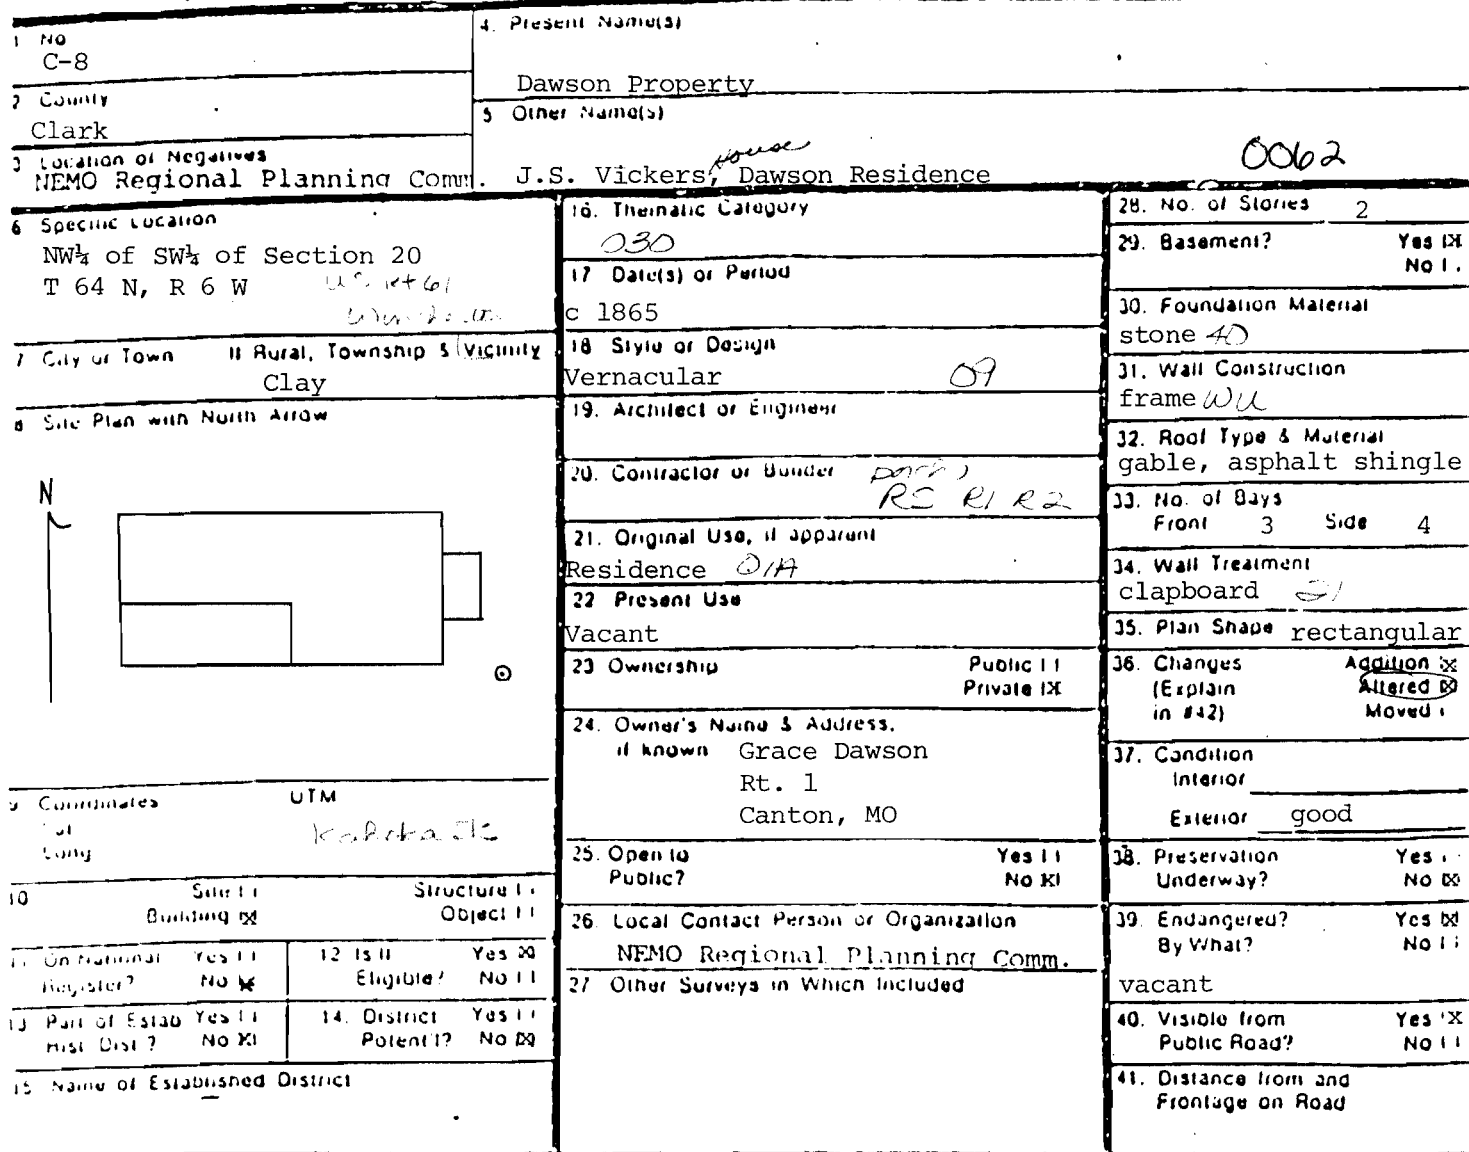 1 No
C-8
2 County
Clark
3 Location of Negatives
NEMO Regional Planning Comm.
4. Present Name(s)
Dawson Property
5 Other Name(s)
J.S. Vickers, House Dawson Residence
0062
6 Specific Location
NW¼ of SW¼ of Section 20
T 64 N, R 6 W
US Rt 61
7 City or Town If Rural, Township & Vicinity
Clay
8 Site Plan with North Arrow
N
9 Coordinates UTM
Lat
Long
Kahoka
10 Site [ ] Structure [ ]
Building [X] Object [ ]
11 On National Register? Yes [ ] No [X]
12 Is It Eligible? Yes [X] No [ ]
13 Part of Estab Hist Dist? Yes [ ] No [X]
14. District Potent'l? Yes [ ] No [X]
15 Name of Established District
16. Thematic Category
030
17 Date(s) or Period
c 1865
18 Style or Design
Vernacular 09
19. Architect or Engineer
20. Contractor or Builder
RC R1 R2
21. Original Use, if apparent
Residence 01A
22 Present Use
Vacant
23 Ownership Public [ ]
Private [X]
24. Owner's Name & Address,
if known Grace Dawson
Rt. 1
Canton, MO
25. Open to Yes [ ]
Public? No [X]
26. Local Contact Person or Organization
NEMO Regional Planning Comm.
27 Other Surveys in Which Included
28. No. of Stories 2
29. Basement? Yes [X]
No [ ]
30. Foundation Material
stone 40
31. Wall Construction
frame WU
32. Roof Type & Material
gable, asphalt shingle
33. No. of Bays
Front 3 Side 4
34. Wall Treatment
clapboard 21
35. Plan Shape rectangular
36. Changes Addition [X]
(Explain Altered [X]
in #42) Moved [ ]
37. Condition
Interior
Exterior good
38. Preservation Yes [ ]
Underway? No [X]
39. Endangered? Yes [X]
By What? No [ ]
vacant
40. Visible from Yes [X]
Public Road? No [ ]
41. Distance from and
Frontage on Road